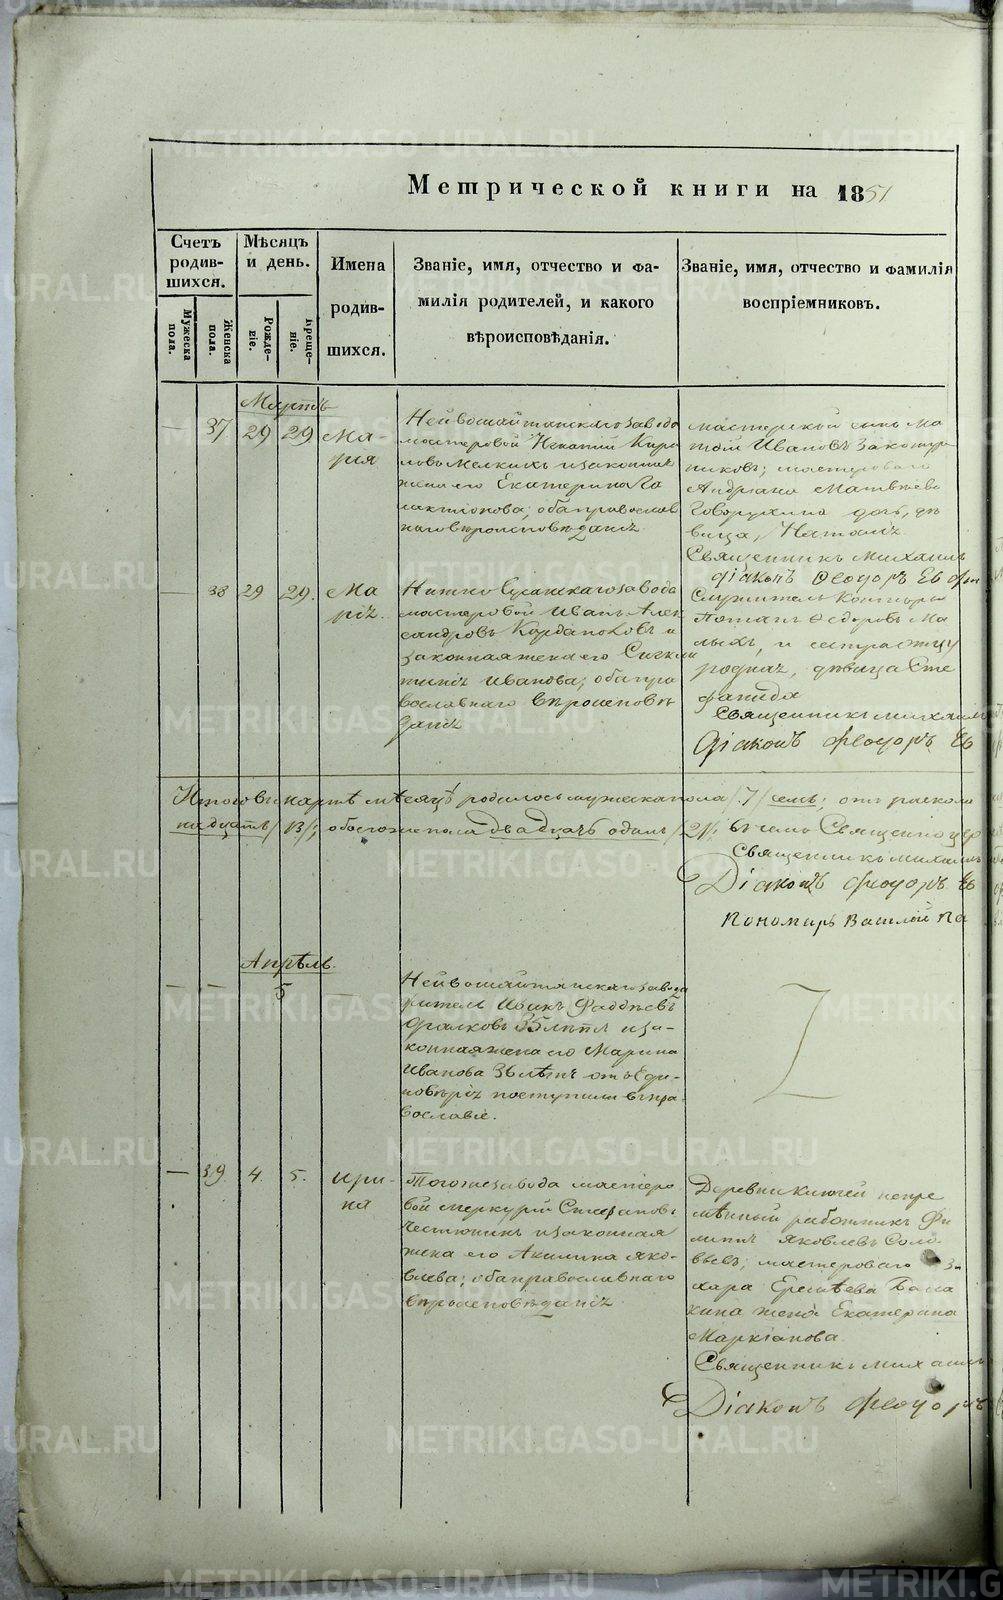 Метрической книги на 1851
Счетъ родив-шихся.
Мѣсяцъ и день.
Имена родив-шихся.
Званіе, имя, отчество и фа-
милія родителей, и какого
вѣроисповѣданія.
Званіе, имя, отчество и фамилія
воспріемниковъ.
Мужеска пола.
Женска пола.
Рожде-ніе.
Креще-ніе.
Мартъ
— 37 29 29 Ма-
рія
Нейвошайтанскаго завода
мастеровой Игнатій Кири
ловъ Мелкихъ и законная
жена его Екатерина Га
лактіонова; оба православ
наго вѣроисповѣданія
мастерской сынъ Ма
твѣй Ивановъ
мастероваго
Андріана Матвѣева
Говорухина дочь, дѣ
вица, Наталія
Священникъ Михаилъ
Діаконъ Ѳеодоръ Ев
— 38 29 29. Ма
рія.
Нижно Сусанскаго завода
мастеровой Иванъ Алек
сандровъ и
законная жена его
Иванова; оба пра
вославнаго вѣроисповѣ
данія
Служитель Конторы
Потапъ Ѳедоровъ Ма
лыхъ, и сестра ему
родная, дѣвица Сте
фанида
Священникъ Михаилъ
Діаконъ Ѳеодоръ Ев
Итого въ мартѣ мѣсяцѣ родилось мужеска пола /7/ семь;
надцать /13/; обоего же пола двадцать одинъ /21/; въ чемъ Священноцер
Священникъ Михаилъ
Діаконъ Ѳеодоръ Ев
Пономарь Василій Па
Апрѣль.
— — 5 —
Нейвошайтанскаго завода
житель Иванъ Фаддѣевъ
35 лѣтъ и за-
конная жена его Марина
Иванова 36 лѣтъ отъ Еди-
новѣрія поступили въ пра
вославіе.
— 39. 4. 5. Ири-
на
Тогоже завода мастеро
вой Меркурій Стефановъ
и законная
жена его Акилина Яко-
влева; оба православнаго
вѣроисповѣданія
Деревни Ключей непре
мѣнный работникъ Фи
липпъ Яковлевъ Соло
вьевъ; мастероваго За
хара Еремѣева Бала
кина жена Екатерина
Маркіанова.
Священникъ Михаилъ
Діаконъ Ѳеодоръ
METRIKI.GASO-URAL.RU